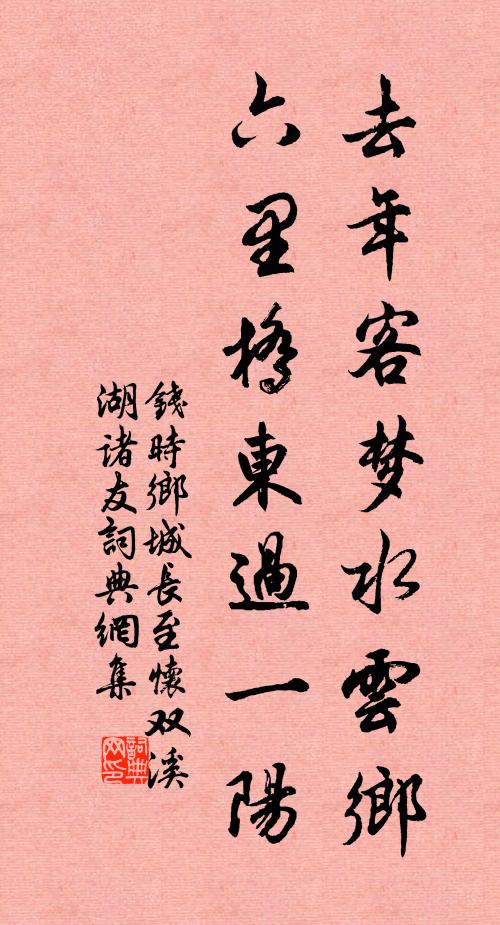 去年客梦水雲鄉
六里橋東過一陽
錢時鄉城長至懷双溪
湖諸友詞典網集
詞典网印